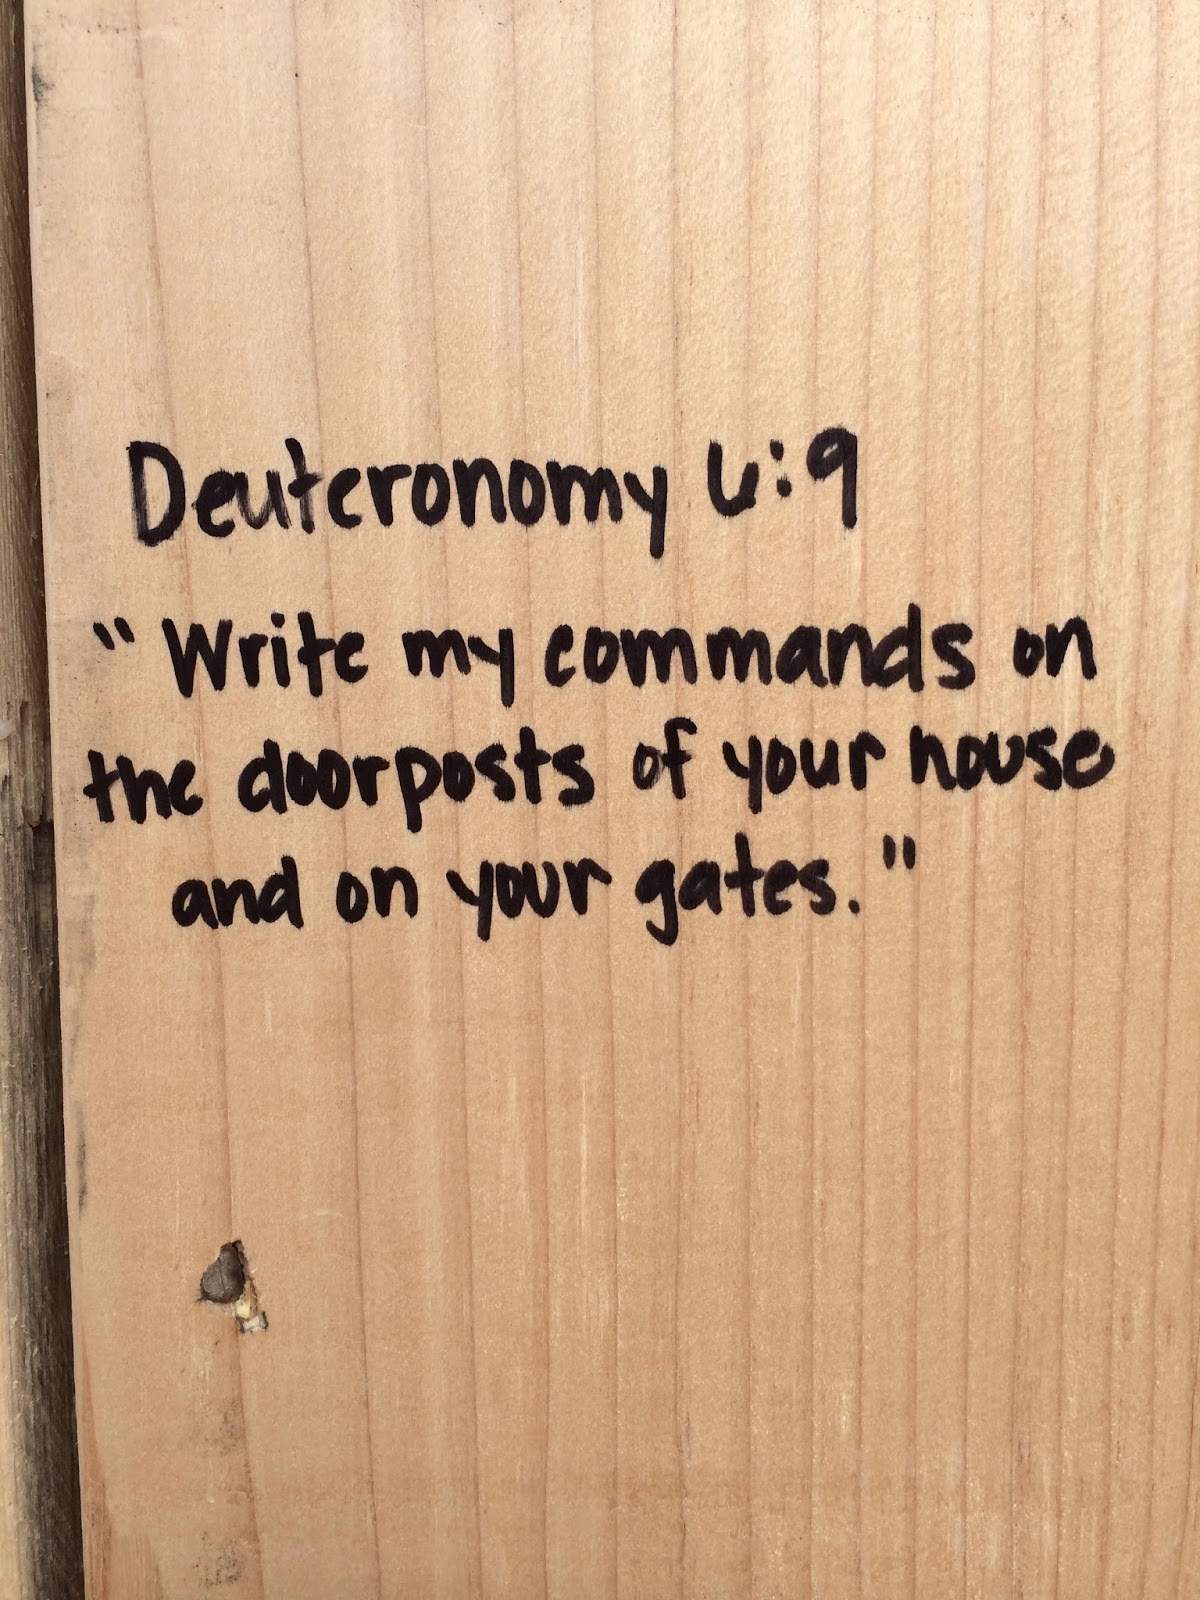 Deuteronomy 6:9
"Write my commands on
the doorposts of your house
and on your gates."